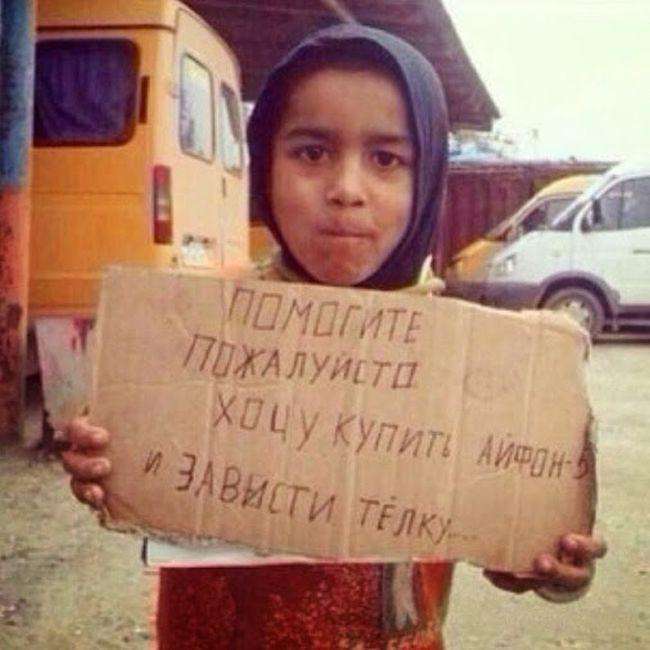 ПОМОГИТЕ
ПОЖАЛУИСТО
ХОЦУ КУПИТЬ АЙФОН-5
И ЗАВИСТИ ТЁЛКУ....